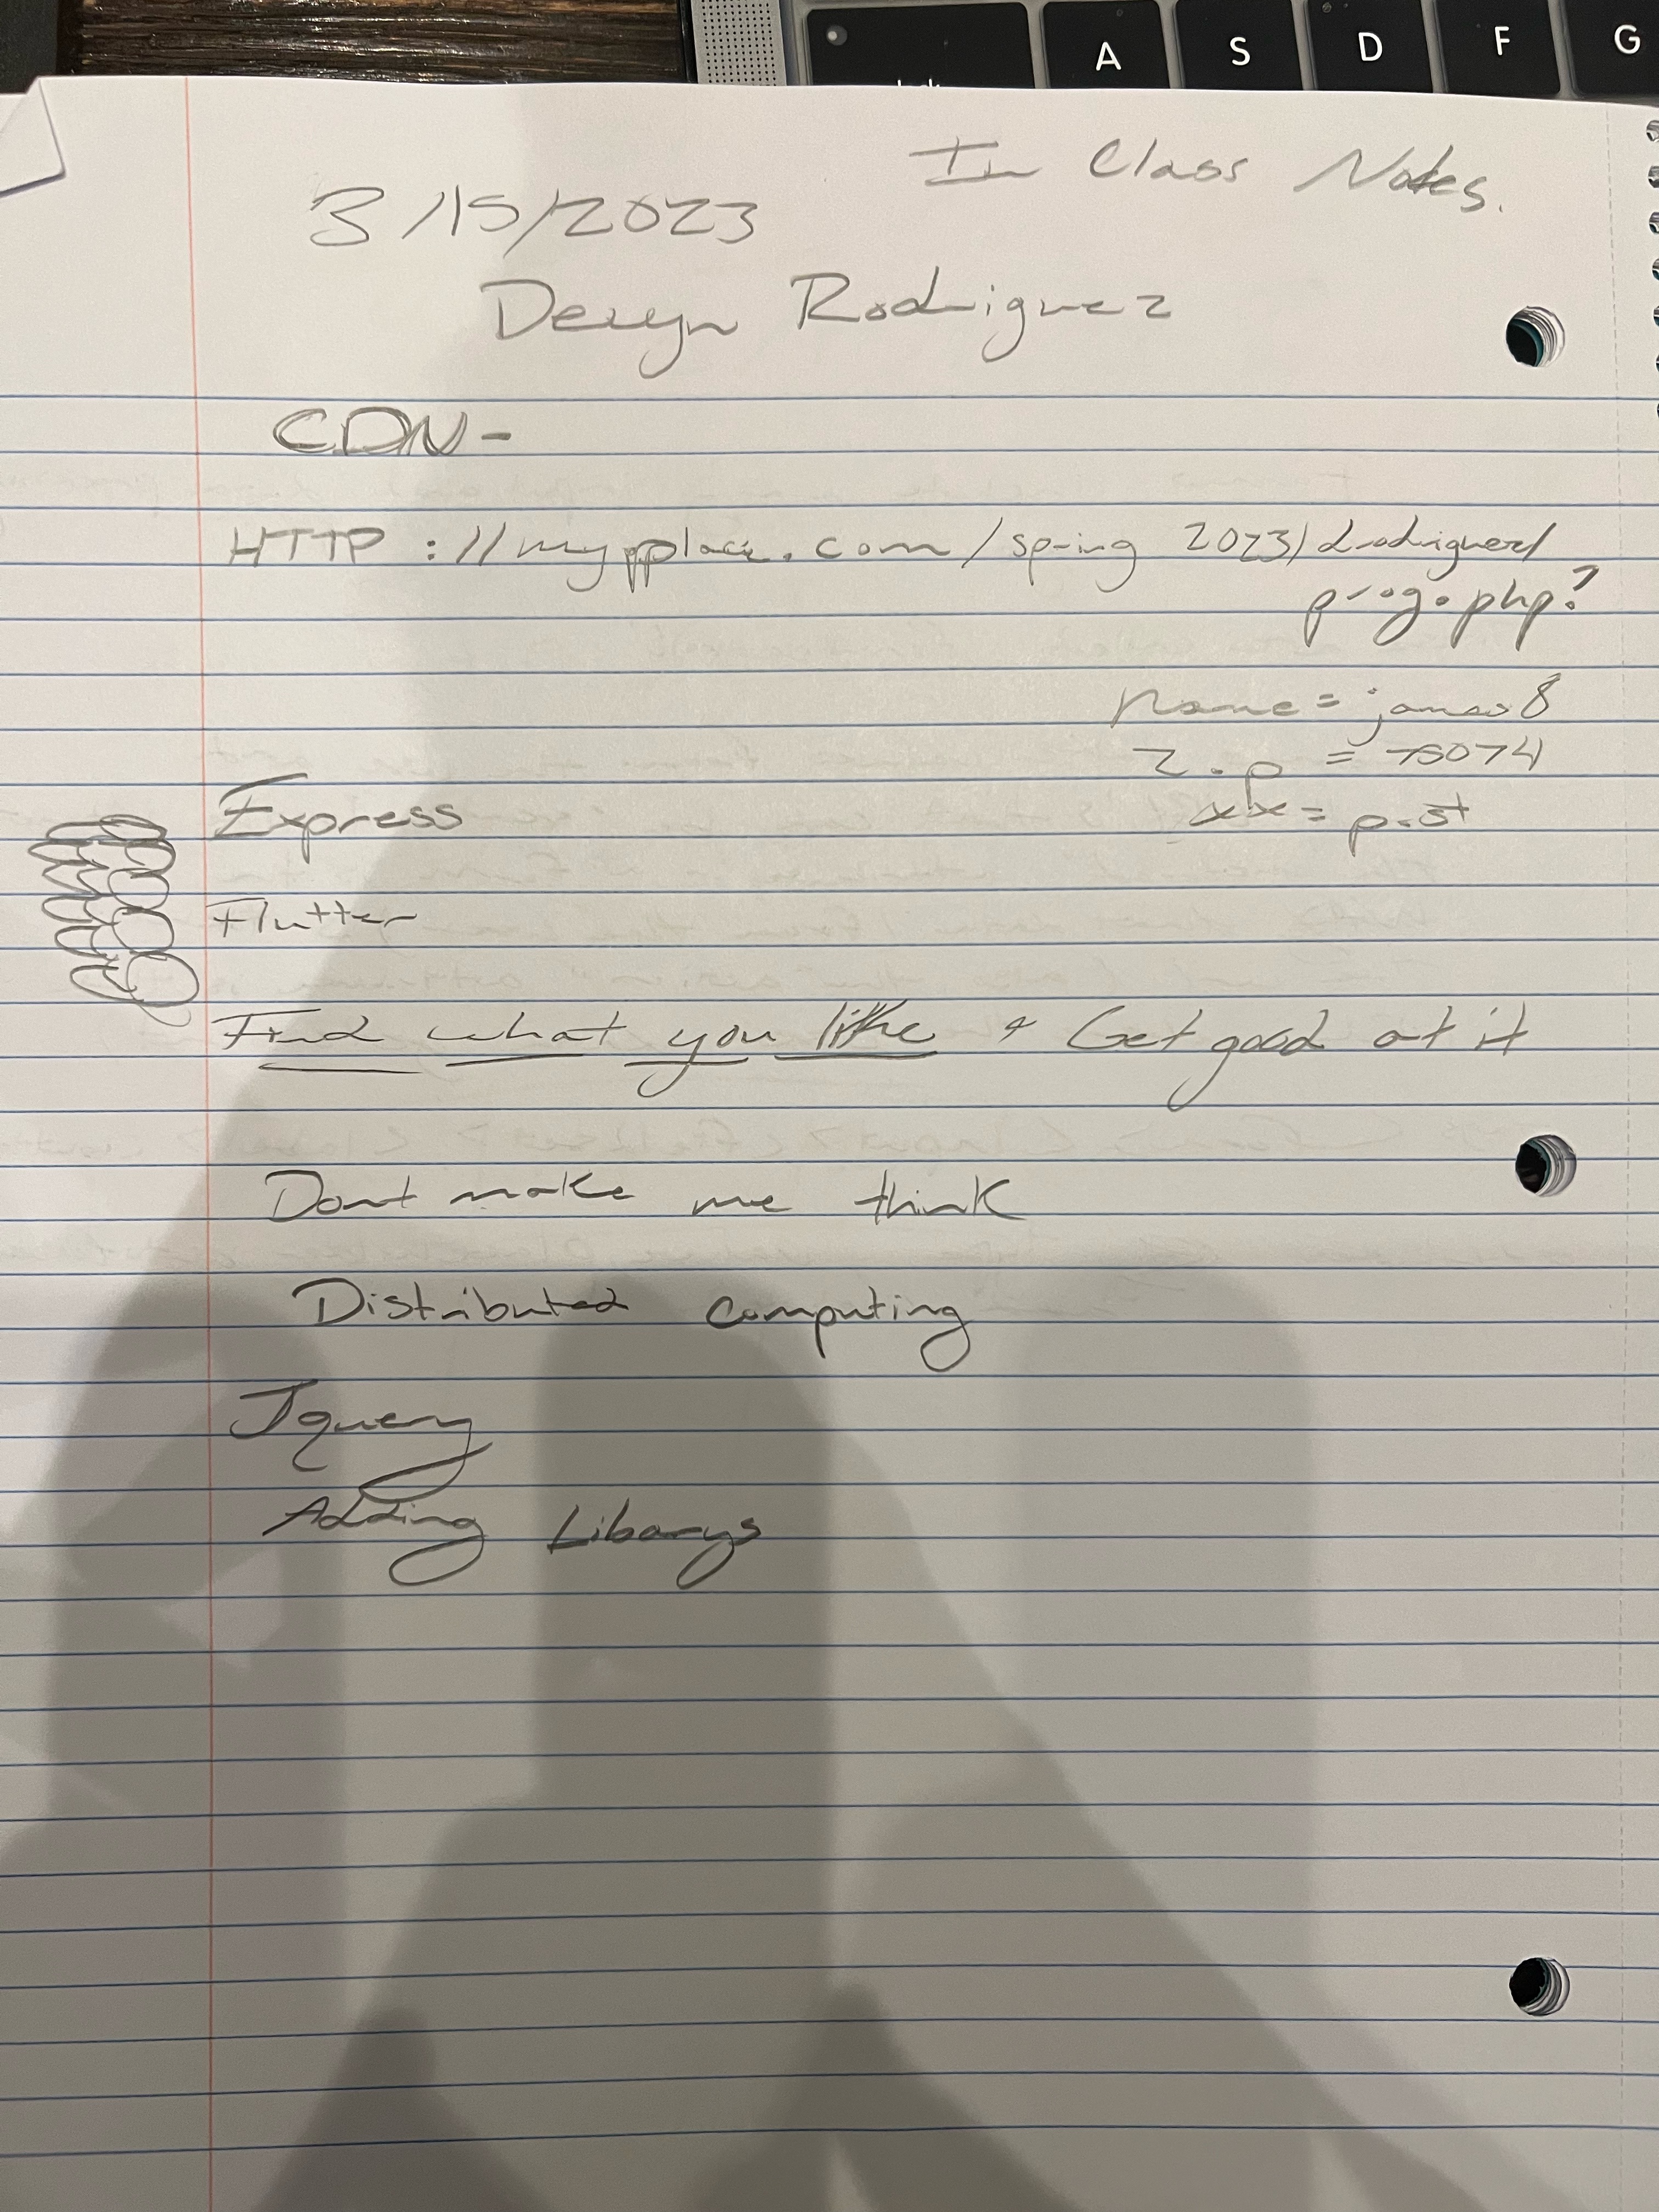 A S D F G
In Class Notes.
3/15/2023
Devyn Rodriguez
CDN-
HTTP://mypplace.com/spring 2023/drodriguez/
prog.php?
name = james &
zip = 75074
xx = post
Express
Flutter
Find what you like & Get good at it
Dont make me think
Distributed computing
Jquery
Adding Libarys